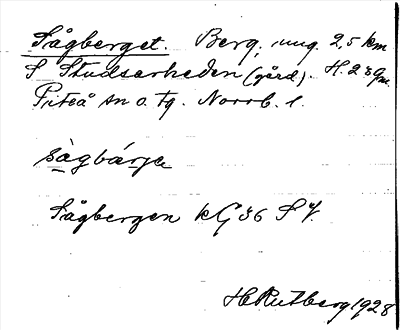 Sågberget. Berg, ung. 2,5 km
S Studsarheden (gård). H.
Piteå sn o. tg. Norrb. l.
sàgbárje
Sågbergen kG36 SV.
H Rutberg 1928